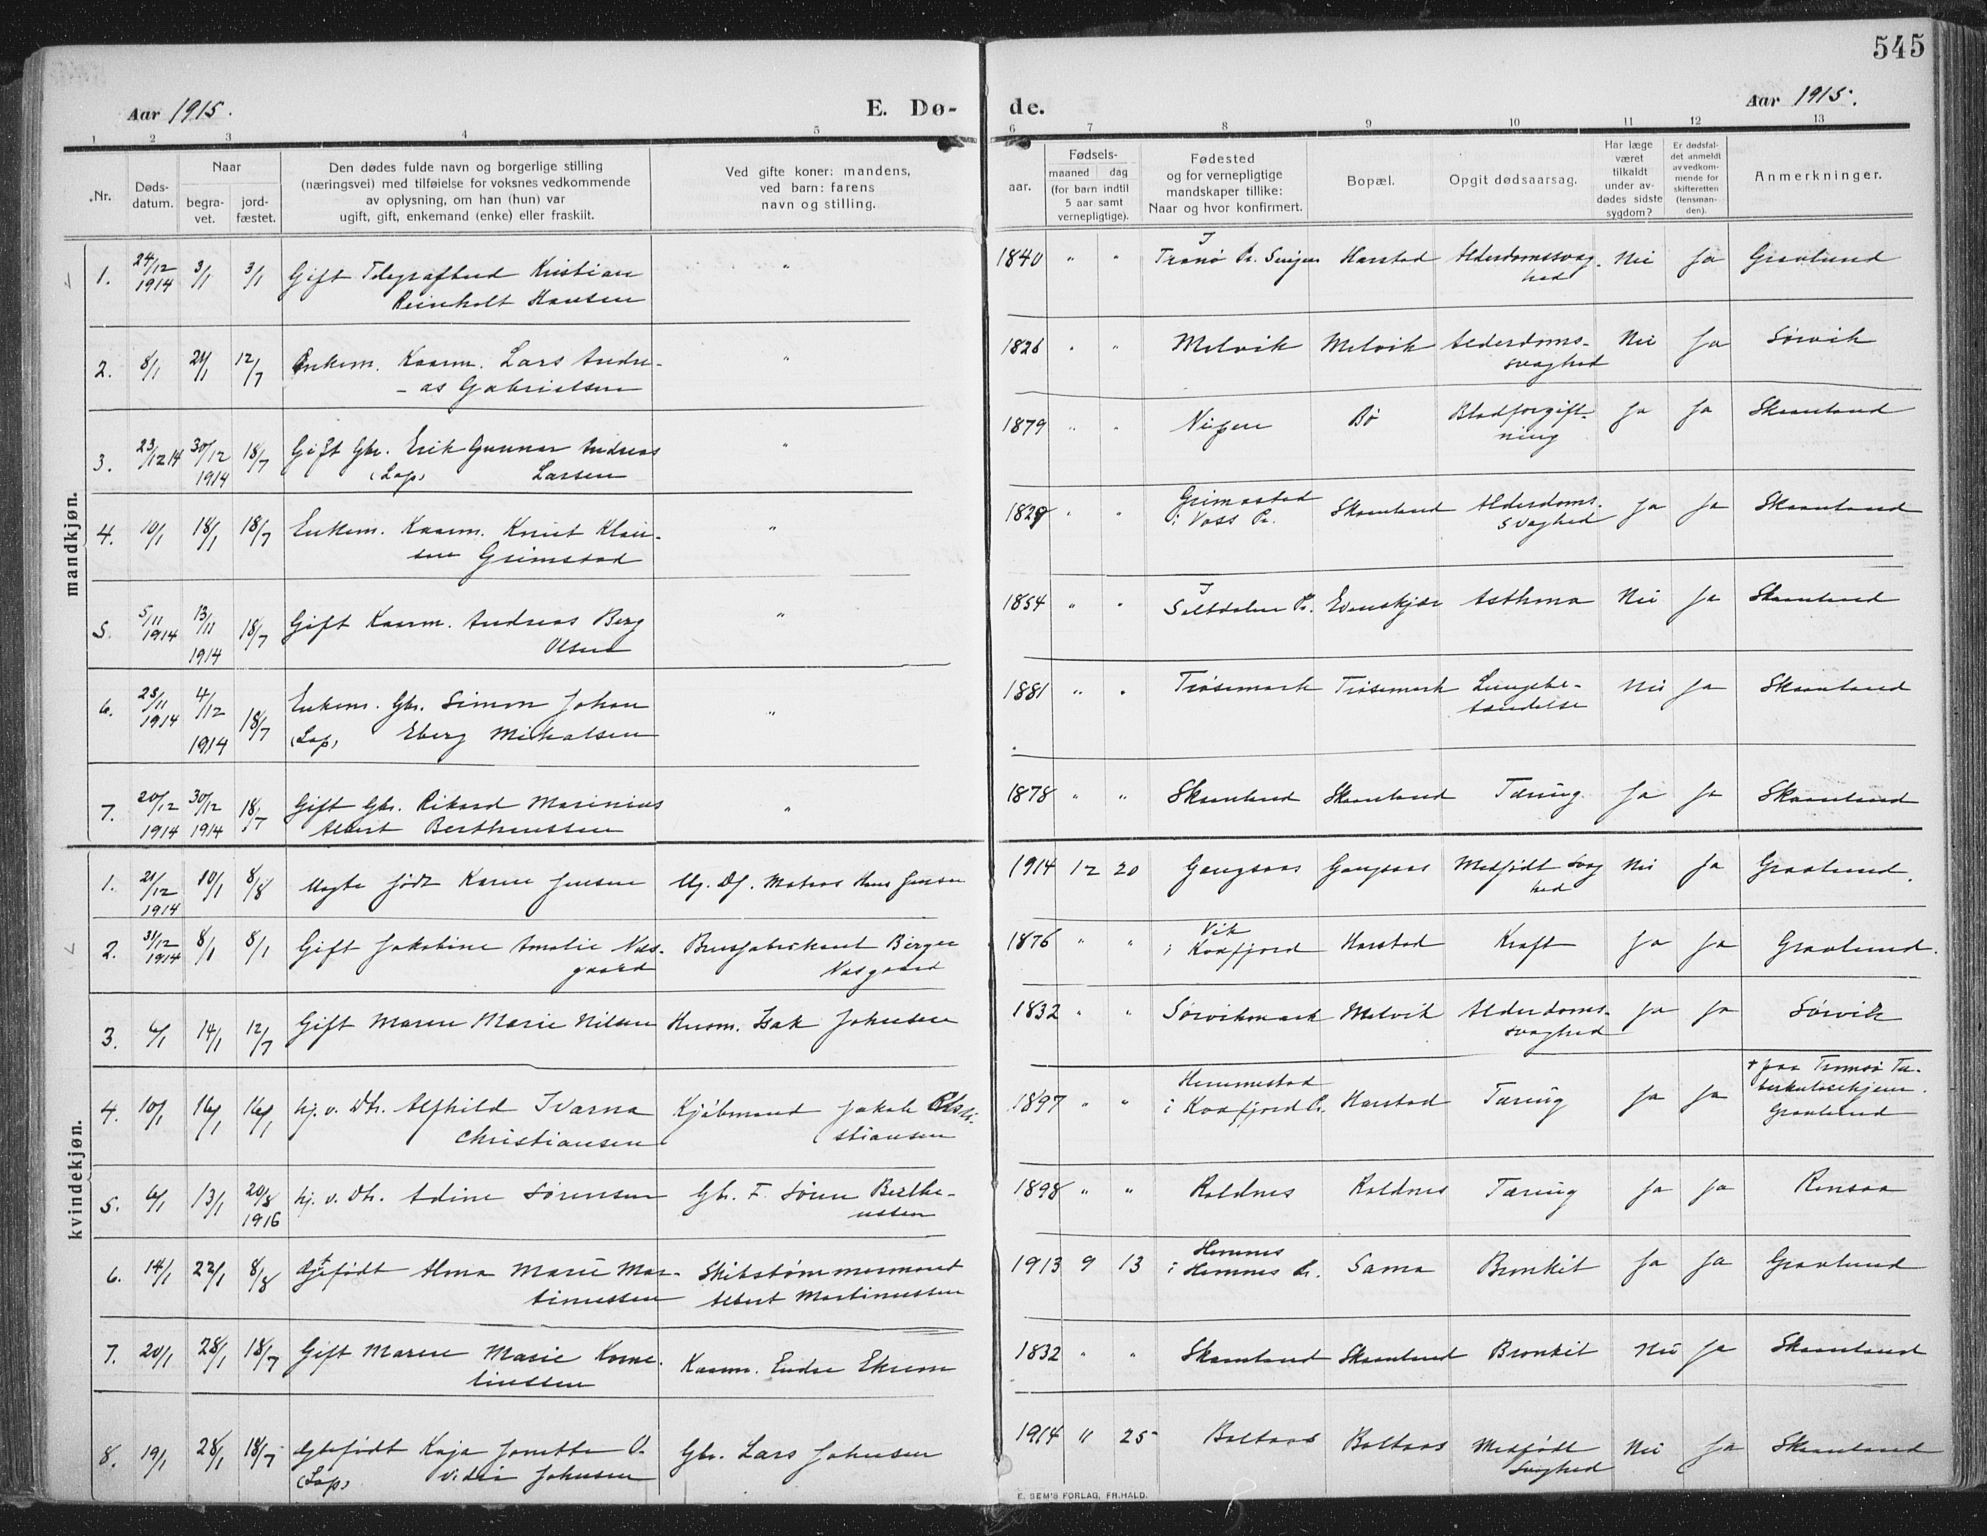 545
Aar 1915. E. Dø- de. Aar 1915.
1 2 3 4 5 6 7 8 9 10 11 12 13
Nr.
Døds-
datum.
Naar
begra-
vet.
jord-
fæstet.
Den dødes fulde navn og borgerlige stilling
(næringsvei) med tilføielse for voksnes vedkommende
av oplysning, om han (hun) var
ugift, gift, enkemand (enke) eller fraskilt.
Ved gifte koner: mandens,
ved barn: farens
navn og stilling.
Fødsels-
aar.
maaned dag
(for barn indtil
5 aar samt
vernepligtige).
Fødested
og for vernepligtige
mandskaper tillike:
Naar og hvor konfirmert.
Bopæl.
Opgit dødsaarsag.
Har læge
været
tilkaldt
under av-
dødes sidste
sygdom?
Er dødsfal-
det anmeldt
av vedkom-
mende for
skifteretten
(lensman-
den).
Anmerkninger.
mandkjøn.
1. 24/12 1914 3/1 3/1 Gift Telegrafbud Kristian
Reinholt Hansen
" 1840 " " I
Tranø Pr. Senjen Harstad Alderdomssvag-
hed Nei Ja Gravlund
2. 8/1 24/1 12/7 Enkem. Kaarm. Lars Andre-
as Gabrielsen
" 1826 " " Melvik Melvik Alderdoms-
svaghed Nei Ja Sørvik
3. 23/12 14 30/12 1914 18/7 Gift Gbr. Erik Gunnar Andreas
(Lap) Larsen
" 1879 " " Nipen Bø Blodforgift-
ning Ja Ja Skaanland
4. 10/1 18/1 18/7 Enkem. Kaarm. Knut Klau-
sen Grimstad
" 1829 " " Grimastad
i Voss Pr. Skaanland Alderdoms-
svaghed Ja Ja Skaanland
5. 5/11 1914 13/11 1914 18/7 Gift Kaarm. Andreas Berg
Olsen
" 1854 " " I
Saltdalen Pr. Evenskjær Asthma Nei Ja Skaanland
6. 23/11 1914 4/12 1914 18/7 Enkem. Gbr. Simon Johan
(Lap) Eberg Mikalsen
" 1881 " " Trøsemark Trøsemark Lungebe-
tændelse Nei Ja Skaanland
7. 20/12 1914 30/12 1914 18/7 Gift Gbr. Rikard Marinius
Albert Berthinussen
" 1878 " " Skaanland Skaanland Tæring Ja Ja Skaanland
kvindekjøn.
1. 21/12 1914 10/1 8/8 Uægte født Karen Jensen Ug. Df. Matros Hans Jensen
1914 12 20 Gangsaas Gangsaas Medfødt svag
hed Nei Ja Gravlund.
2. 31/12 1914 8/1 8/1 Gift Jakobine Amalie Næs-
gaard Brusfabrikant Birger
Næsgaard
1876 " " Vik
i Kvæfjord Harstad Kræft Ja Ja Gravlund.
3. 6/1 14/1 12/7 Gift Maren Marie Nilsen Husm. Isak Johnsen
1832 " " Sørvikmark Melvik Alderdoms-
svaghed Ja Ja Sørvik
4. 10/1 16/1 16/1 hj. v. Dtr. Alfhild Ivarna
Christiansen Kjøbmand Jakob Chri-
stiansen
1897 " " Hemmestad
i Kvæfjord Pr. Harstad Tæring Ja Ja + paa Tromsø Tu-
berkulosehjem.
Gravlund
5. 6/1 13/1 20/8 1916 hj. v. Dtr. Adine Sørensen Gbr. F. Søren Berthe-
ussen
1898 " " Roldnes Roldnes Tæring Ja Ja Rensaa
6. 14/1 22/1 8/8 Gtefødt Alma Marie Mar-
tinussen Skibstømmermand
Albert Martinussen
1913 9 13 Hemnes
i Hemnes Pr. Sama Bronkit Ja Ja Gravlund
7. 20/1 28/1 18/7 Gift Maren Marie Korne-
liussen Kaarm. Endre Ekrem
1832 " " Skaanland Skaanland Bronkit Nei Ja Skaanland
8. 19/1 28/1 18/7 Gtefødt Kaja Jonette O-
(Lap) vidia Johnsen Gbr. Lars Johnsen
1914 11 25 Boltaas Boltaas Medfødt
svaghed Nei Ja Skaanland
E. SEM'S FORLAG, FR.HALD.